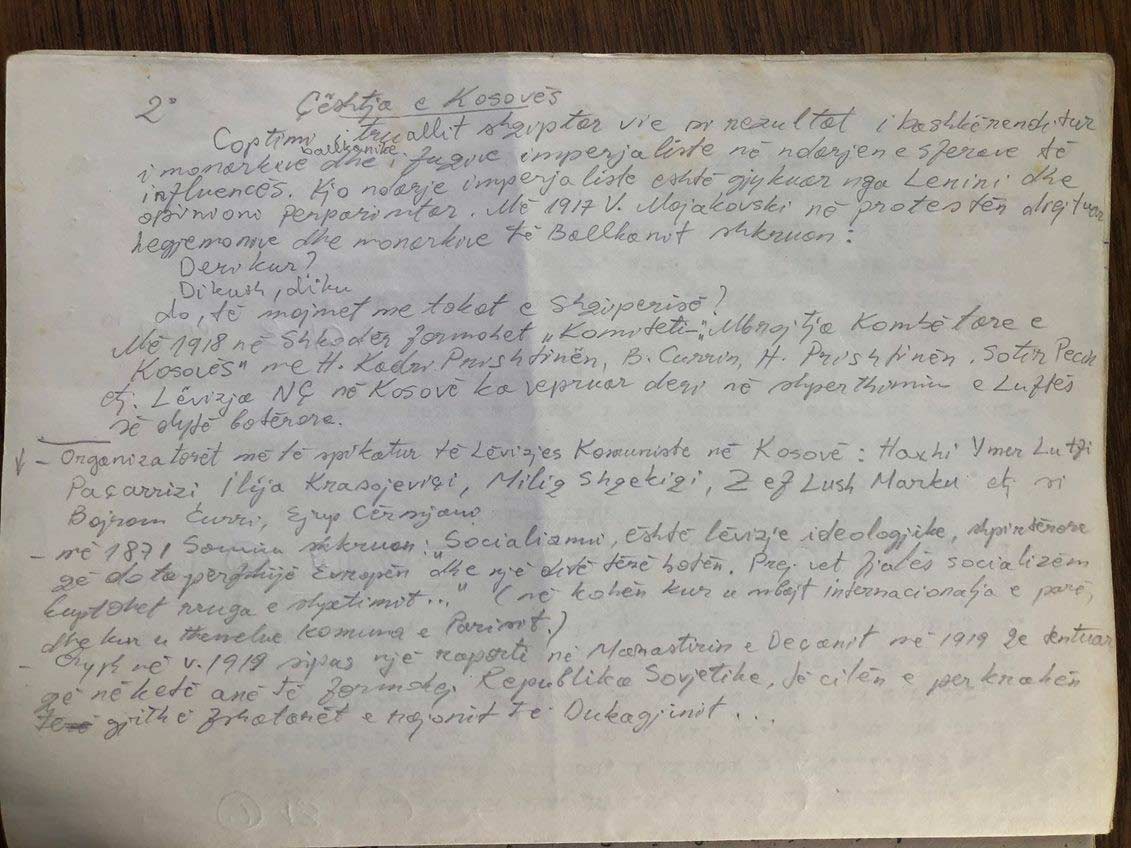 2° Çështja e Kosovës
Coptimi i truallit shqiptar vie si rezultat i bashkërenditur
i monarkive ballkanike dhe i fuqive imperjaliste në ndarjen e sferave të
influencës. Kjo ndarje imperjaliste është gjykuar nga Lenini dhe
opinioni përparimtar. Më 1917 V. Majakovski në protestën drejtuar
hegjemonive dhe monarkive të Ballkanit shkruan:
Deri kur?
Dikush, diku
do, të majmet me tokat e Shqiperisë?
Më 1918 në Shkodër formohet „Komiteti-„Mbrojtja Kombëtare e
Kosovës" me H. Kadri Prishtinën, B. Currin, H. Prishtinën, Sotir Pecin
etj. Lëvizja NÇ në Kosovë ka vepruar deri në shperthimin e Luftës
së dytë botërore.
- Organizatorët më të spikatur të Lëvizjes Komuniste në Kosovë: Haxhi Ymer Lutfi
Paçarrizi, Ilija
Bajram Curri, Ejup
- më 1871 shkruan: „Socializmi, është lëvizje ideologjike, shpirtërore
që do ta perfshijë Evropën dhe një ditë tërë botën. Prej vet fjalës socializëm
kuptohet rruga e shpëtimit..." (në kohën kur u mbajt internacionalja e parë,
dhe kur u themelue Komuna e Parisit.)
- në v. 1919 sipas një raporti në Manastirin e Deçanit më 1919
që në këtë anë të formohej Republika Sovjetike, të cilën e perkrahën
të gjithë fshatarët e rajonit të Dukagjinit...